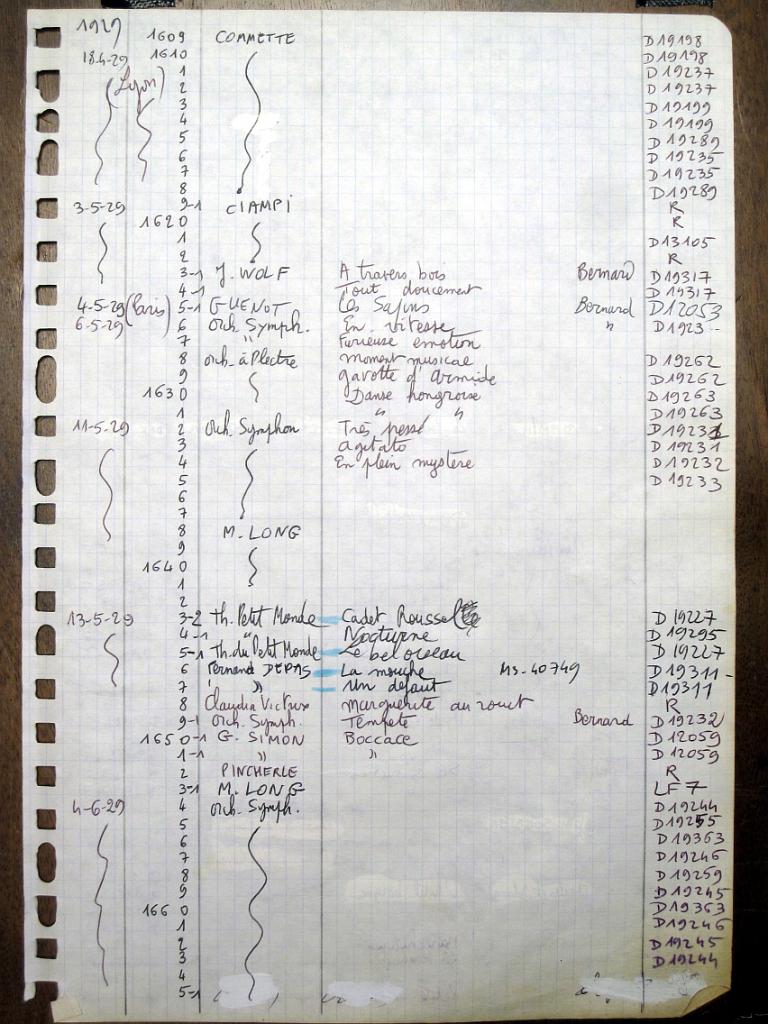 1929
1609 COMMETTE D19198
18-4-29 1610 D19198
(Lyon) 1 D19237
2 D19237
3 D19199
4 D19199
5 D19289
6 D19235
7 D19235
8 D19289
3-5-29 9-1 CIAMPI R
1620 R
1 D13105
2 R
3-1 J. WOLF A travers bois Bernard D19317
4-1 Tout doucement D19317
4-5-29 (Paris) 5-1 GUENOT Les Sapins Bernard D12053
6-5-29 6 Orch. Symph. En vitesse " D1923--
7 " Furieuse emotion
8 orch. à Plectre moment musical D19262
9 gavotte d'Armide D19262
1630 Danse hongroise D19263
1 " " D19263
11-5-29 2 Orch. Symphon Très pressé D19231
3 agitato D19231
4 En plein mystère D19232
5 D19233
6
7
8 M. LONG
9
1640
1
2
13-5-29 3-2 Th. Petit Monde Cadet Roussel D19227
4-1 " Nocturne D19295
5-1 Th. du Petit Monde Le bel oiseau D19227
6 Fernand DEPAS La mouche Ms. 40749 D19311
7 " " Un défaut D19311
8 Claudia Victrix Marguerite au rouet R
9-1 Orch. Symph. Tempete Bernard D19232
1650-1 G. SIMON Boccace D12059
1-1 " " D12059
2 PINCHERLE R
3-1 M. LONG LF7
4-6-29 4 Orch. Symph. D19244
5 D19255
6 D19363
7 D19246
8 D19259
9 D19245
1660 D19363
1 D19246
2 D19245
3 D19244
4
5-1